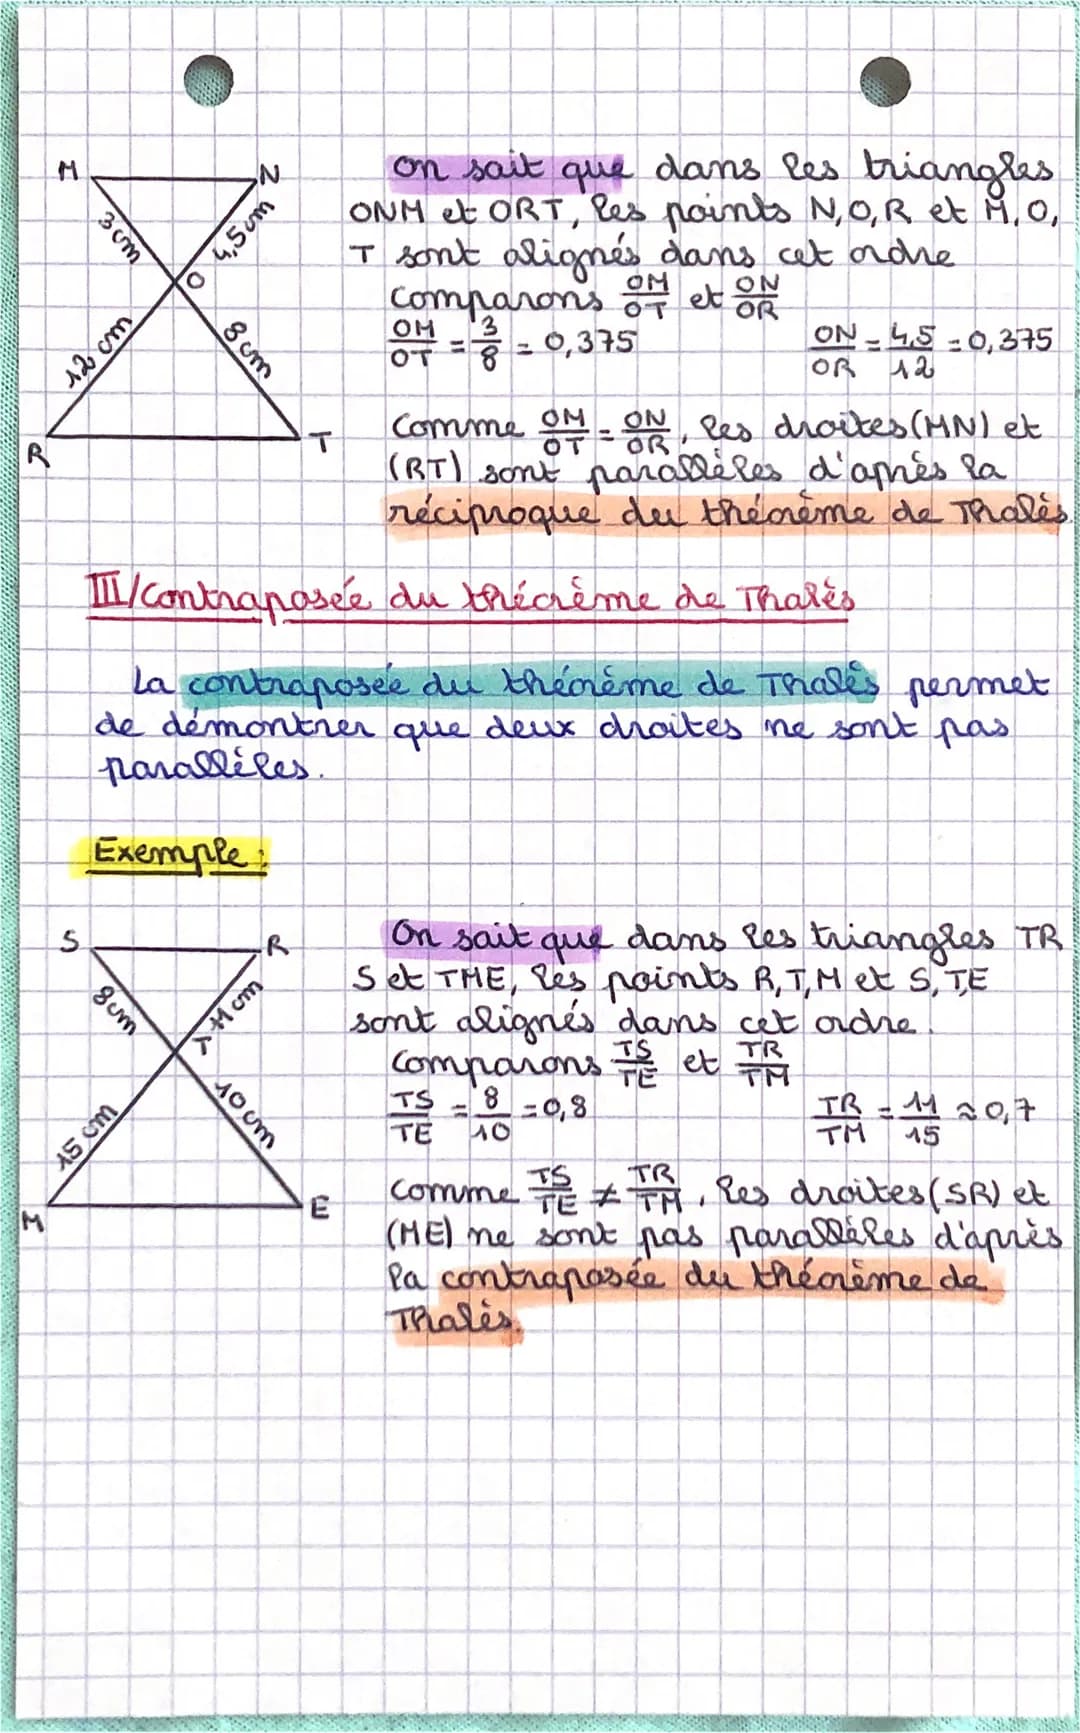 M
N
3cm
4,5cm
O
12 cm
8cm
R
T
On sait que dans les triangles
ONM et ORT, les points N,O,R et M,O,
T sont alignés dans cet ordre
Comparons OM/OT et ON/OR
OM/OT = 3/8 = 0,375 ON/OR = 4,5/12 = 0,375
Comme OM/OT = ON/OR, les droites (MN) et
(RT) sont parallèles d'après la
réciproque du théorème de Thalès
III/Contraposée du théorème de Thalès
La contraposée du théorème de Thalès permet
de démontrer que deux droites ne sont pas
parallèles.
Exemple :
S
R
8cm
11cm
T
15 cm
10cm
M
E
On sait que dans les triangles TR
S et TME, les points R,T,M et S,T,E
sont alignés dans cet ordre.
Comparons TS/TE et TR/TM
TS/TE = 8/10 = 0,8 TR/TM = 11/15 ≈ 0,7
Comme TS/TE ≠ TR/TM, les droites (SR) et
(ME) ne sont pas parallèles d'après
la contraposée du théorème de
Thalès.